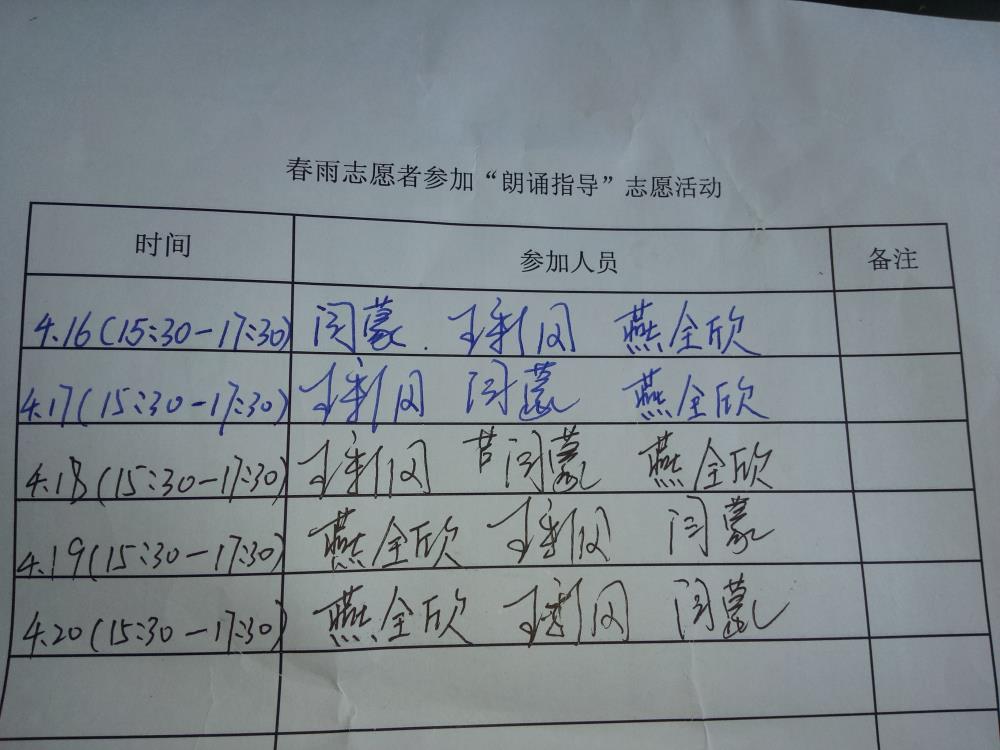 春雨志愿者参加“朗诵指导”志愿活动
时间 参加人员 备注
4.16(15:30-17:30) 闫蒙. 王利冈 燕全欣
4.17(15:30-17:30) 王利冈 闫蒙 燕全欣
4.18(15:30-17:30) 王利冈 闫蒙 燕全欣
4.19(15:30-17:30) 燕全欣 王利冈 闫蒙
4.20(15:30-17:30) 燕全欣 王利冈 闫蒙